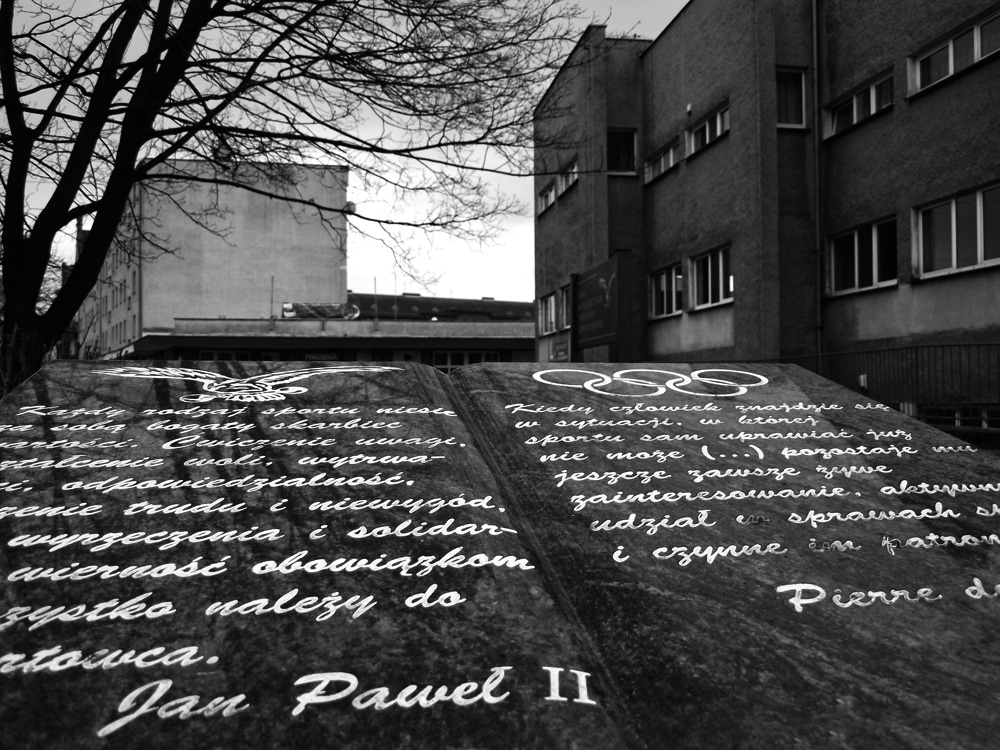 Każdy rodzaj sportu niesie
za sobą bogaty skarbiec
wartości. Ćwiczenie uwagi,
ształcenie woli, wytrwa-
ci, odpowiedzialność,
zenie trudu i niewygód,
wyrzeczenia i solidar-
wierność obowiązkom
zystko należy do
rtowca.
Jan Paweł II
Kiedy człowiek znajdzie się
w sytuacji, w której
sportu sam uprawiać już
nie może (...) pozostaje mu
jeszcze zawsze żywe
zainteresowanie, aktywn
udział w sprawach s
i czynne im patron
Pierre d